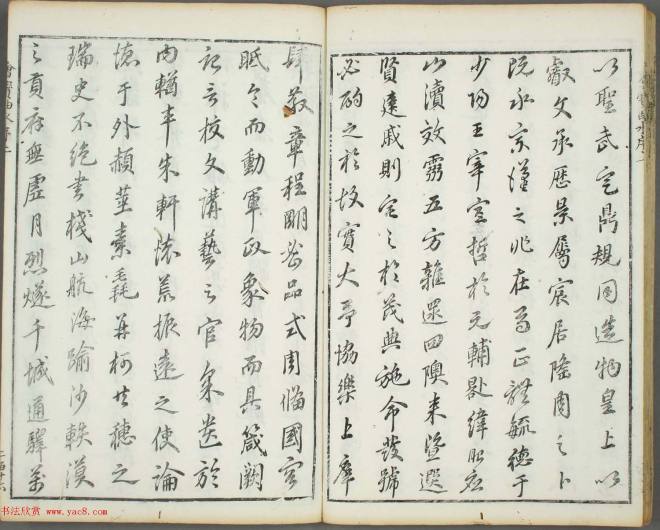 以聖武定鼎規同造物皇上以
叡文承歷景屬宸居隆周之卜
既永宗漢之兆在焉正體毓德于
少陽王宰宣哲於元輔晷緯昭應
山瀆效靈五方雜遝四隩来暨選
賢建戚則宅之於茂典施命發號
必酌之於故實大予協樂上庠
肆教章程明密品式周備國容
眡令而動軍政象物而具箴闕
記言校文講藝之官采遺於
内輶車朱軒懷荒振遠之使論
德于外赬莖素毳并柯共穗之
瑞史不絶書棧山航海踰沙軼漠
之貢府無虛月烈燧千城通驛萬
书法欣赏 www.yac8.com